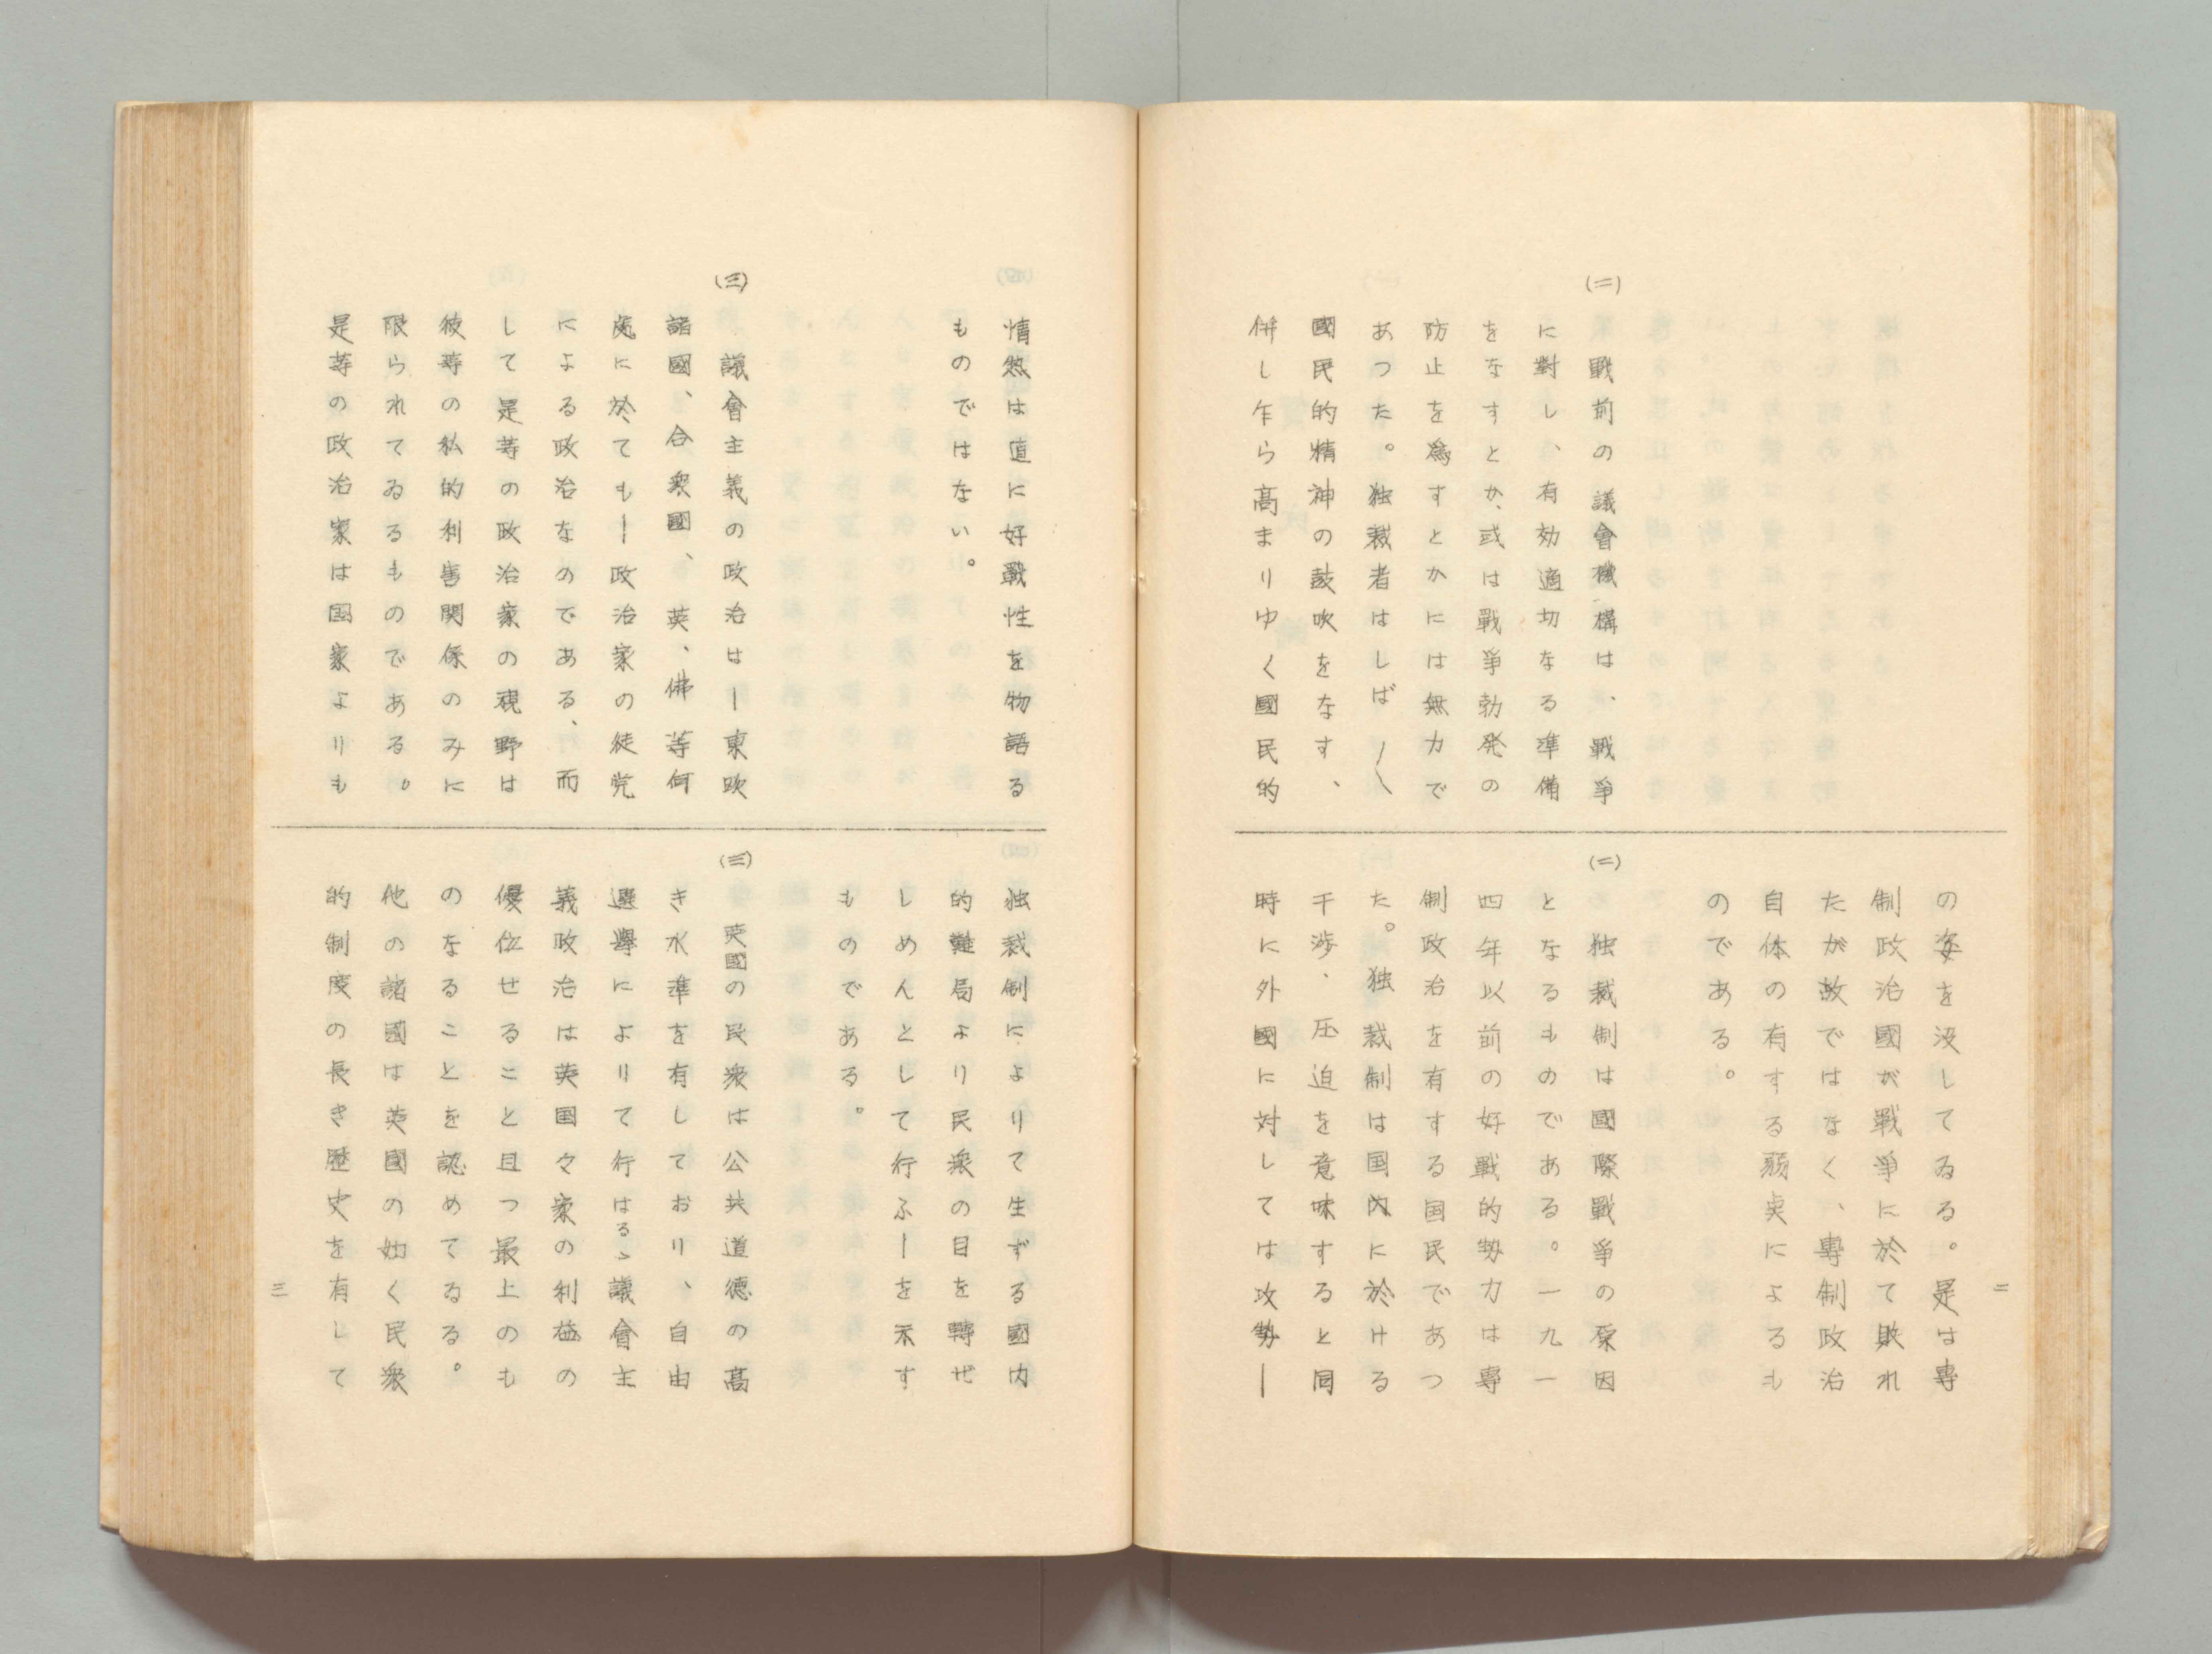 (二)
戰前の議會機構は、戰爭
に對し、有効適切なる準備
をなすとか、或は戰爭勃発の
防止を為すとかには無力で
あつた。独裁者はしば〱
國民的精神の鼓吹をなす、
併し乍ら高まりゆく國民的
の姿を没してゐる。是は專
制政治國が戰爭に於て敗れ
たが故ではなく、專制政治
自体の有する弱奌によるも
のである。
(二)
独裁制は國際戰爭の原因
となるものである。一九一
四年以前の好戰的勢力は專
制政治を有する国民であつ
た。独裁制は国内に於ける
干渉、圧迫を意味すると同
時に外國に対しては攻勢ー
二
情熱は直に好戰性を物語る
ものではない。
(三)
議會主義の政治はー東欧
諸國、合衆國、英、佛等何
處に於てもー政治家の徒党
による政治なのである、而
して是等の政治家の視野は
彼等の私的利害関係のみに
限られてゐるものである。
是等の政治家は国家よりも
独裁制によりて生ずる國内
的難局より民衆の目を轉ぜ
しめんとして行ふーを示す
ものである。
(三)
英國の民衆は公共道德の高
き水準を有しており、自由
選擧によりて行はるゝ議會主
義政治は英国々家の利益の
優位せること且つ最上のも
のなることを認めてゐる。
他の諸國は英國の如く民衆
的制度の長き歴史を有して
三